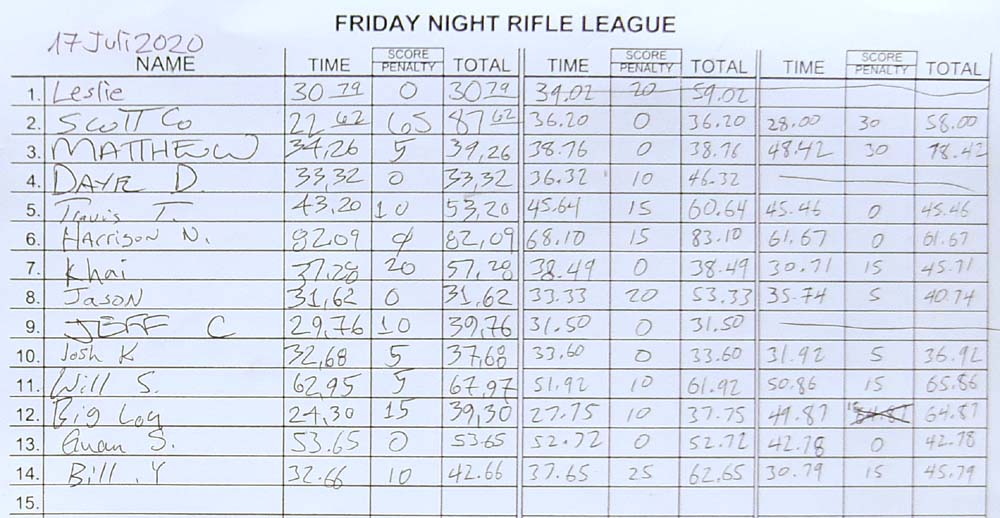 FRIDAY NIGHT RIFLE LEAGUE
17 Juli 2020
NAME TIME SCORE PENALTY TOTAL TIME SCORE PENALTY TOTAL TIME SCORE PENALTY TOTAL
1. Leslie 30 79 0 30 79 39.02 20 59.02
2. Scott Co 22 62 65 87 62 36.20 0 36.20 28.00 30 58.00
3. MATTHEW 34,26 5 39,26 38.76 0 38.76 48.42 30 78.42
4. DAVE D. 33,32 0 33,32 36.32 10 46.32
5. Travis T. 43,20 10 53,20 45.64 15 60.64 45.46 0 45.46
6. HArrison N. 82.09 0 82,09 68.10 15 83.10 61.67 0 61.67
7. Khai 37,28 20 57,28 38.49 0 38.49 30.71 15 45.71
8. JASON 31,62 0 31,62 33.33 20 53.33 35.74 5 40.74
9. JEFF C 29,76 10 39,76 31.50 0 31.50
10. Josh K 32,68 5 37,68 33.60 0 33.60 31.92 5 36.92
11. Will S. 62,95 5 67,97 51.92 10 61.92 50.86 15 65.86
12. Big Loy 24,30 15 39,30 27.75 10 37.75 49.87 15 64.87 64.87
13. Quan S. 53.65 0 53.65 52.72 0 52.72 42.78 0 42.78
14. Bill. Y 32.66 10 42.66 37.65 25 62.65 30.79 15 45.79
15.